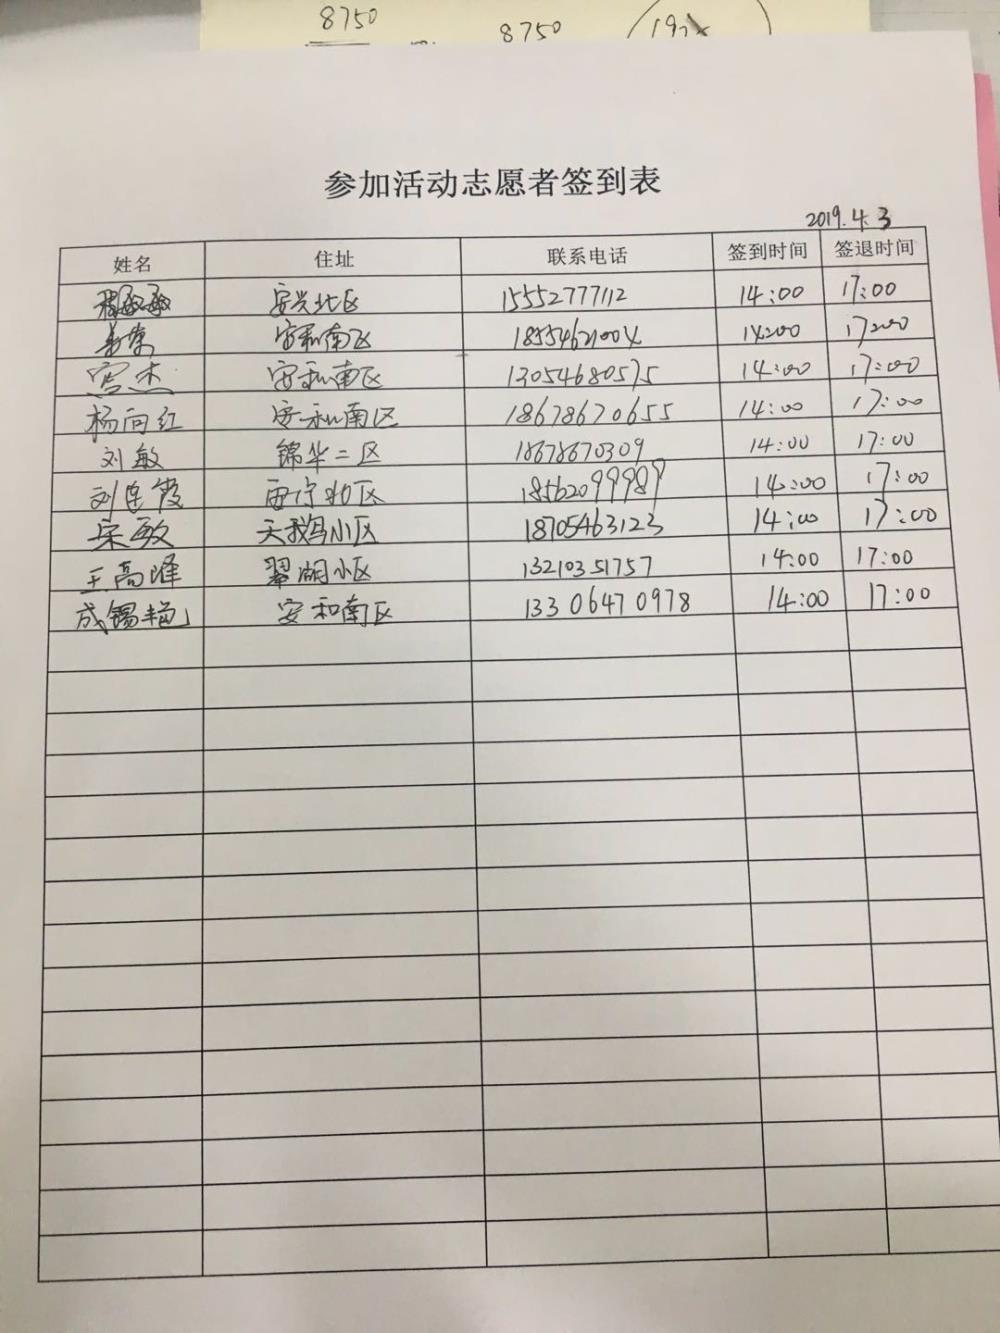 8750
8750
参加活动志愿者签到表
2019.4.3
姓名 住址 联系电话 签到时间 签退时间
安兴北区 15552777112 14:00 17:00
安和南区 18554621004 14:00 17:00
宫杰 安和南区 13054680575 14:00 17:00
杨向红 安和南区 18678670655 14:00 17:00
刘敏 锦华二区 18678670309 14:00 17:00
刘连霞 西宁北区 18562099989 14:00 17:00
宋敏 天鹅小区 18705463123 14:00 17:00
王高峰 翠湖小区 13210351757 14:00 17:00
成锡艳 安和南区 13306470978 14:00 17:00